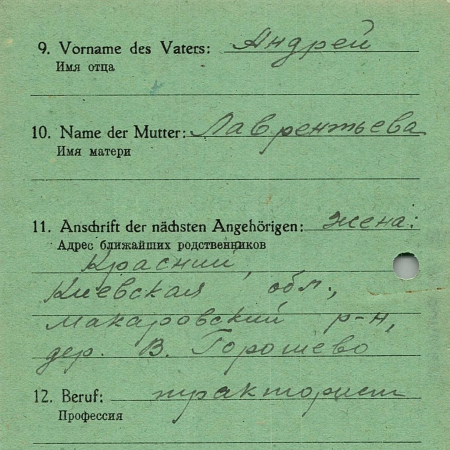 9. Vorname des Vaters: Андрей
Имя отца
10. Name der Mutter: Лаврентьева
Имя матери
11. Anschrift der nächsten Angehörigen: жена:
Адрес ближайших родственников
Красний,
Киевская обл.,
Макаровский р-н,
дер. В. Горошево
12. Beruf: тракторист
Профессия